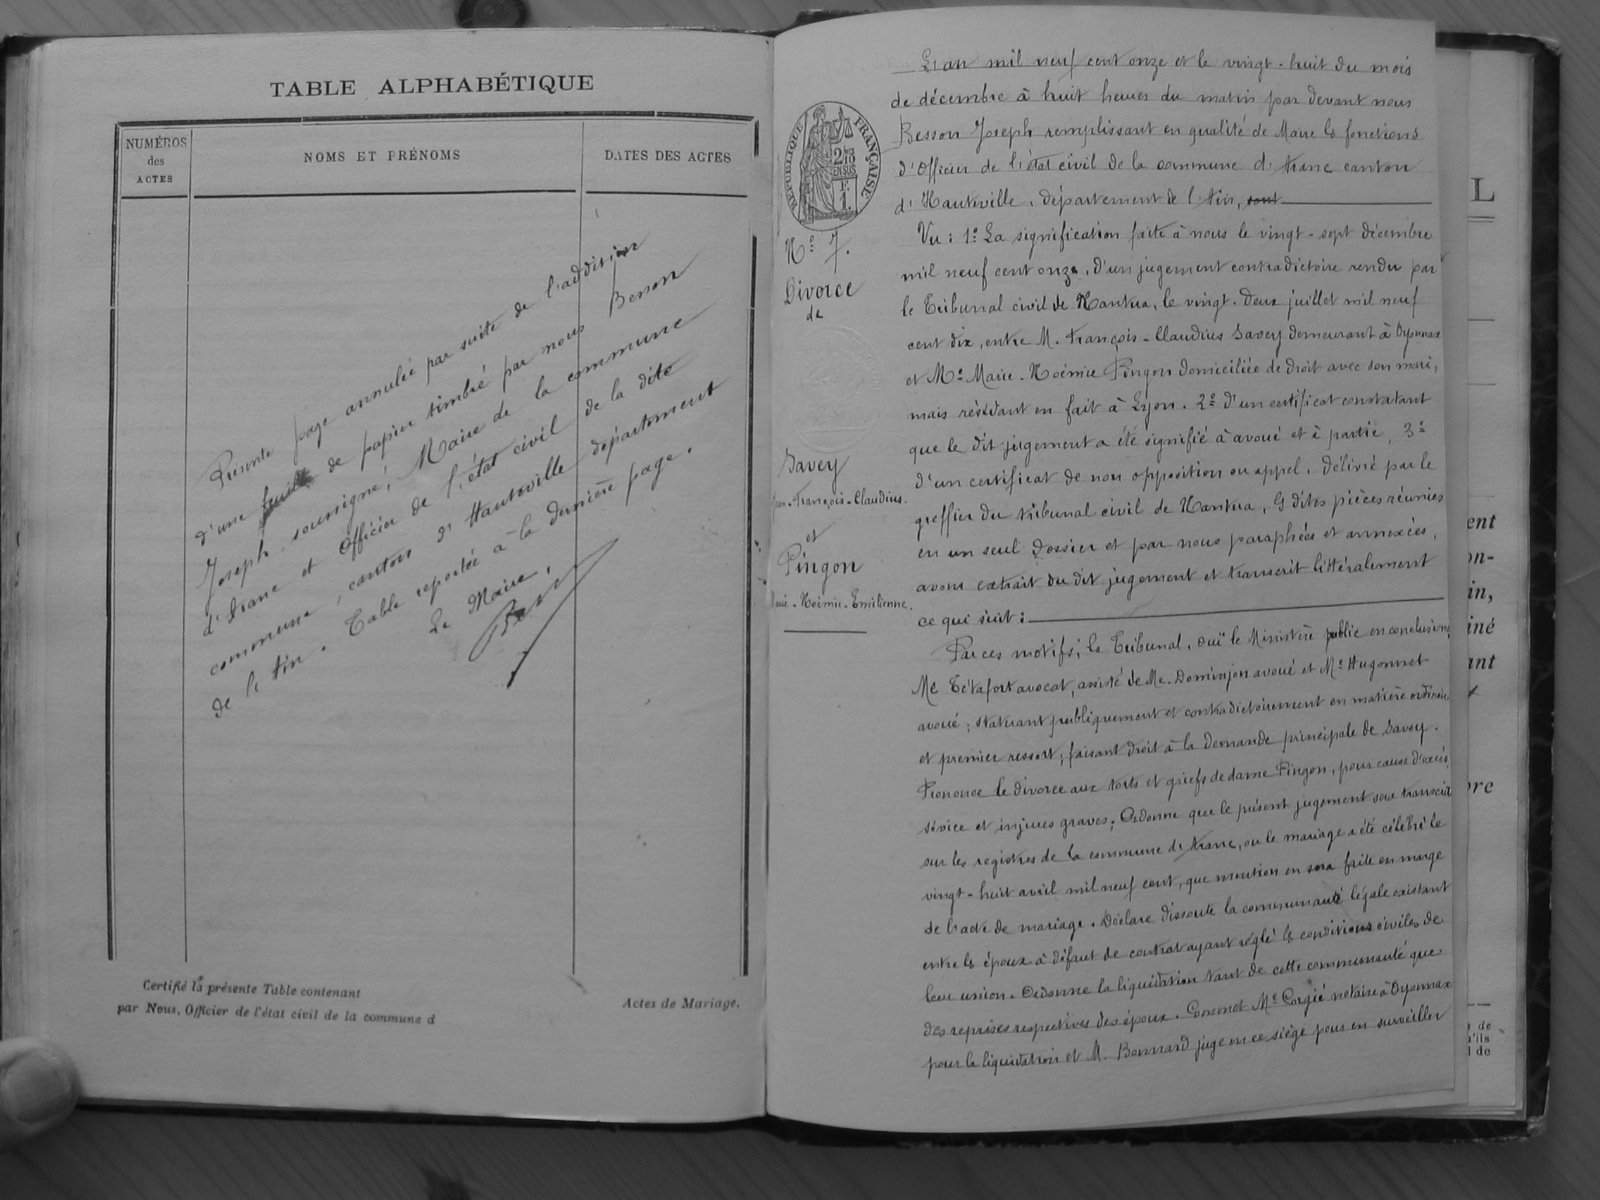 TABLE ALPHABÉTIQUE
NUMÉROS
des
ACTES
NOMS ET PRÉNOMS
DATES DES ACTES
Présente page annulée par suite de l'addition
d'une feuille de papier timbré par nous Besson
Joseph soussigné, Maire de la commune
d'Aranc et Officier de l'état civil de la dite
commune, canton d'Hauteville département
de l'Ain. Table reportée à la dernière page.
Le Maire,
Certifié la présente Table contenant
par Nous, Officier de l'état civil de la commune d
Actes de Mariage.
RÉPUBLIQUE FRANÇAISE
N° 7.
Divorce
de
Savey
François-Claudius
et
Pingon
Noémie-Emilienne.
L'an mil neuf cent onze et le vingt-huit du mois
de décembre à huit heures du matin par devant nous
Besson Joseph remplissant en qualité de Maire les fonctions
d'Officier de l'état civil de la commune d'Aranc canton
d'Hauteville, département de l'Ain, sont
Vu : 1° La signification faite à nous le vingt-sept décembre
mil neuf cent onze, d'un jugement contradictoire rendu par
le Tribunal civil de Nantua, le vingt-deux juillet mil neuf
cent dix, entre M. François-Claudius Savey demeurant à Oyonnax
et Me Marie-Noémie Pingon domiciliée de droit avec son mari,
mais résidant en fait à Lyon. 2° d'un certificat constatant
que le dit jugement a été signifié à avoué et à partie, 3°
d'un certificat de non opposition ou appel, délivré par le
greffier du tribunal civil de Nantua, les dites pièces réunies
en un seul dossier et par nous paraphées et annexées,
avons extrait du dit jugement et transcrit littéralement
ce qui suit :
Par ces motifs, le Tribunal, ouï le Ministère public en conclusions,
Me Tétafort avocat, assisté de Me Dominjon avoué et Me Hugonnet
avoué ; statuant publiquement et contradictoirement en matière ordinaire
et premier ressort ; faisant droit à la demande principale de Savey.
Prononce le divorce aux torts et griefs de dame Pingon, pour cause d'excès,
sévice et injures graves ; Ordonne que le présent jugement sera transcrit
sur les registres de la commune d'Aranc, ou le mariage a été célébré le
vingt-huit avril mil neuf cent, que mention en sera faite en marge
de l'acte de mariage. Déclare dissoute la communauté légale existant
entre les époux à défaut de contrat ayant réglé les conditions civiles de
leur union. Ordonne la liquidation tant de cette communauté que
des reprises respectives des époux. Commet Me Corgié notaire à Oyonnax
pour la liquidation et M. Bonnard juge en ce siège pour en surveiller
L
ent
on-
in,
iné
ant
bre
de
u'ils
l de